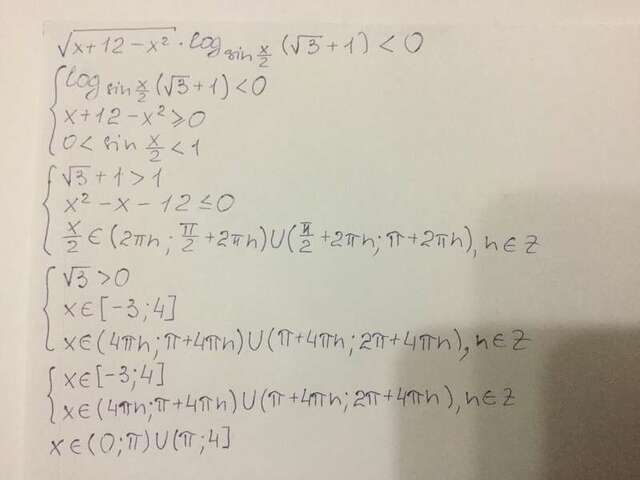 √(x+12-x²) · log_{sin x/2} (√3+1) < 0
{ log_{sin x/2} (√3+1) < 0
x+12-x² ⩾ 0
0 < sin x/2 < 1
{ √3+1 > 1
x²-x-12 ≤ 0
x/2 ∈ (2πn; π/2+2πn) ∪ (π/2+2πn; π+2πn), n ∈ Z
{ √3 > 0
x ∈ [-3; 4]
x ∈ (4πn; π+4πn) ∪ (π+4πn; 2π+4πn), n ∈ Z
{ x ∈ [-3; 4]
x ∈ (4πn; π+4πn) ∪ (π+4πn; 2π+4πn), n ∈ Z
x ∈ (0; π) ∪ (π; 4]